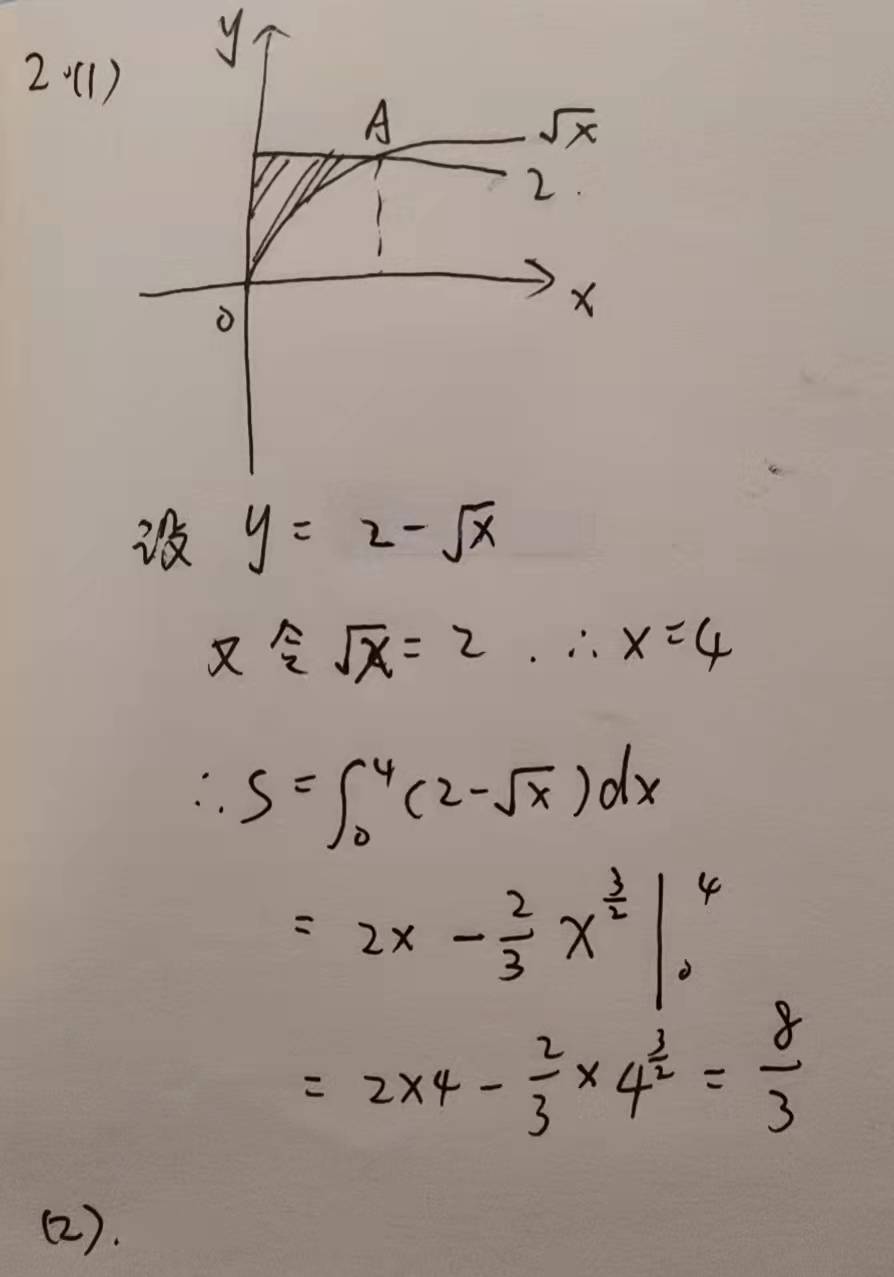 2.(1)
y
A
√x
2.
0
x
设 y = 2-√x
又令√x = 2 . ∴ x=4
∴ S = ∫₀⁴ (2-√x) dx
= 2x - 2/3 x^(3/2) |₀⁴
= 2×4 - 2/3 × 4^(3/2) = 8/3
(2).